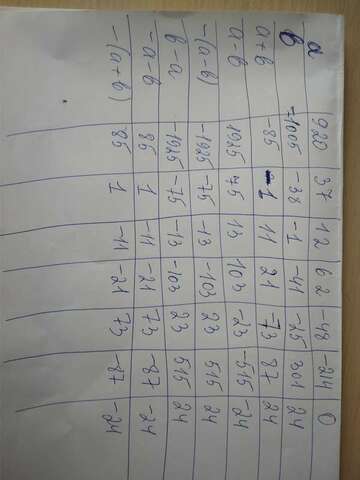 a 920 37 12 62 -48 -214 0
b -1005 -38 -1 -41 -25 301 24
a+b -85 -1 11 21 -73 87 24
a-b 1925 75 13 103 -23 -515 -24
-(a-b) -1925 -75 -13 -103 23 515 24
b-a -1925 -75 -13 -103 23 515 24
-a-b 85 1 -11 -21 73 -87 -24
-(a+b) 85 1 -11 -21 73 -87 -24